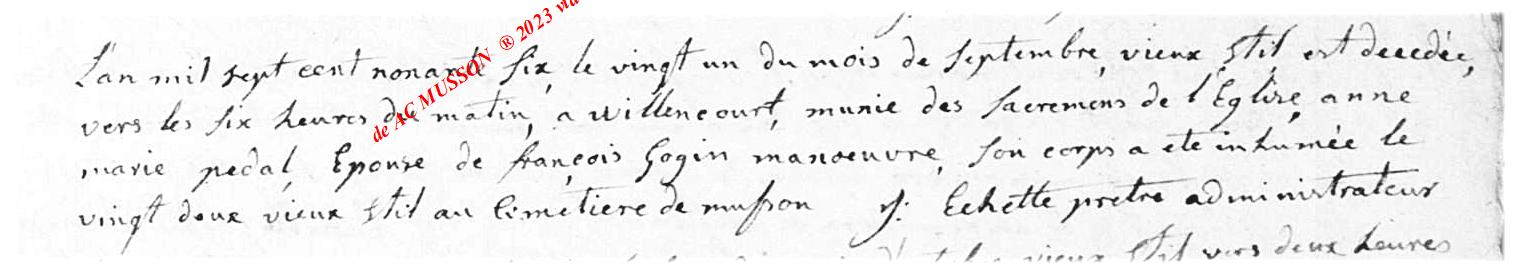 de AC MUSSON ® 2023 via
L'an mil sept cent nonante six le vingt un du mois de septembre, vieux stil est decedée,
vers les six heures du matin, a willencourt, munie des sacremens de l'Eglise, anne
marie pedal, Epouse de françois Gogin manoeuvre, son corps a ete inhumée le
vingt deux vieux stil au Cimetiere de musson Echette pretre administrateur
vieux stil vers deux heures